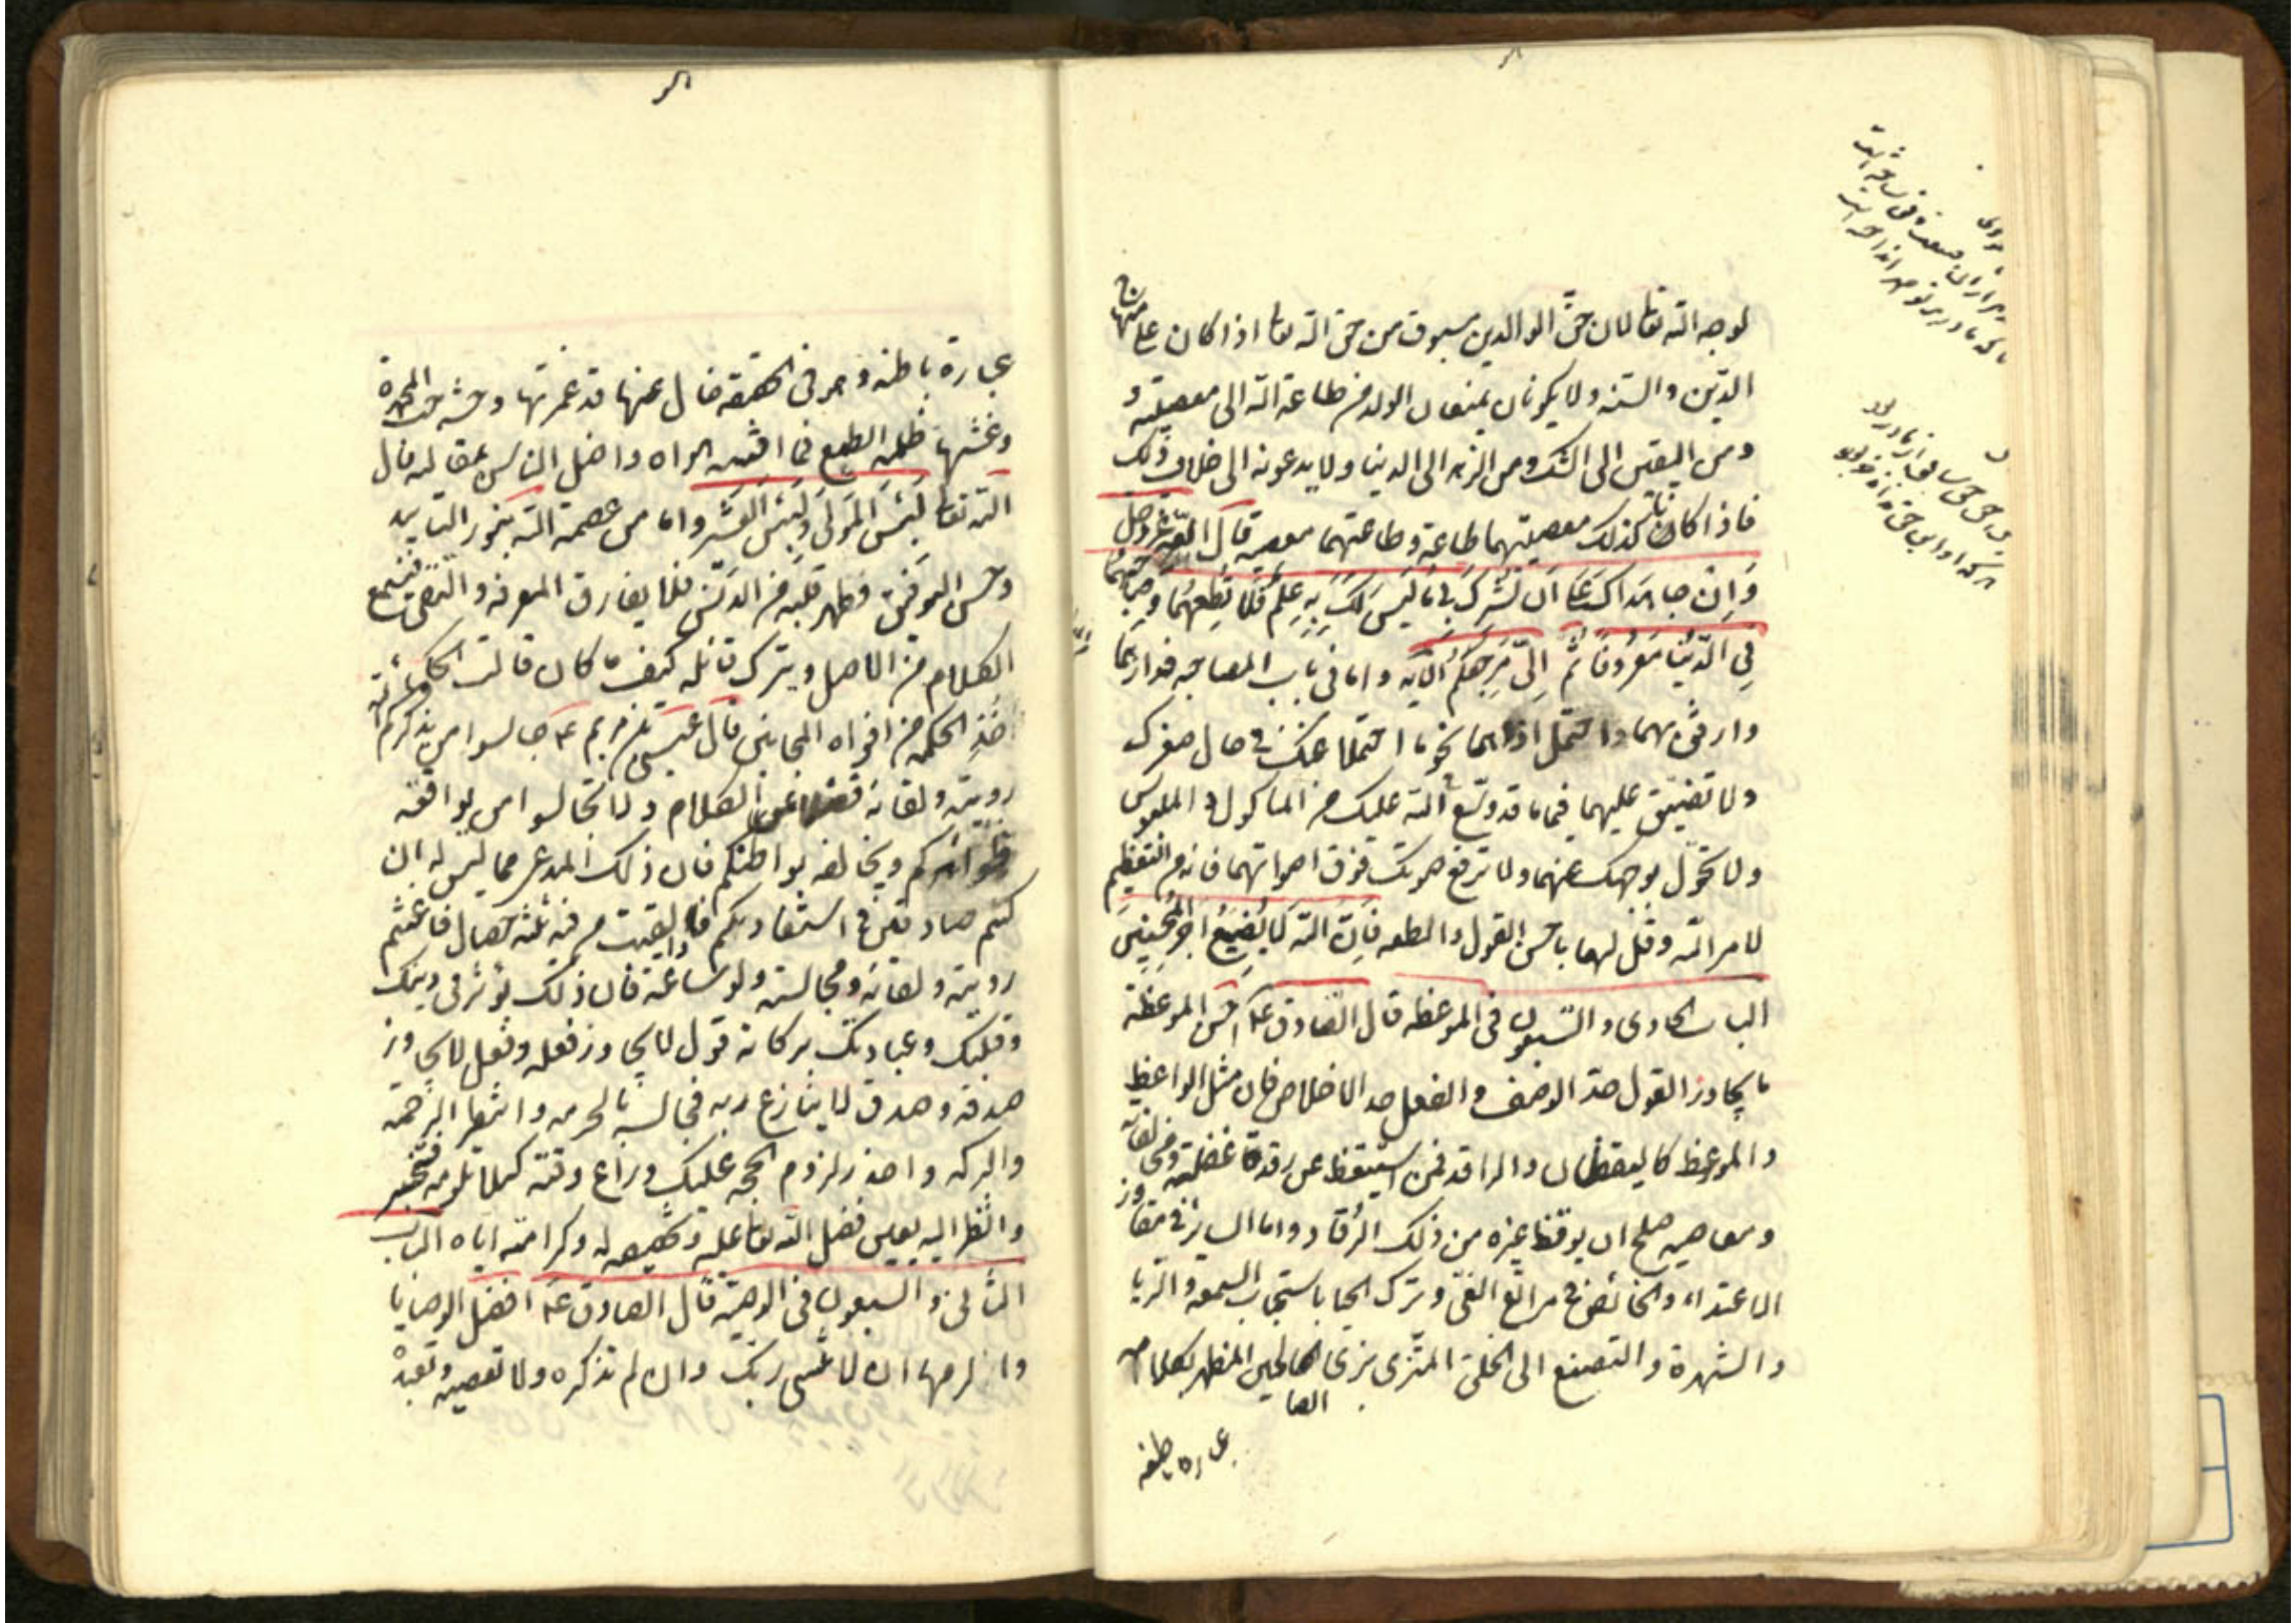 لوجه الله تعالى لان حق الوالدين مسبوق من حق الله تعالى اذا كان على منهاج
الدين والسنة ولا يكونان يمنعان الولد من طاعة الله الى معصيته و
ومن اليقين الى الشك ومن الزهد الى الدنيا ولا يدعونه الى خلاف ذلك
فاذا كانا كذلك معصيتهما طاعة وطاعتهما معصية قال الله عز وجل
وَاِن جاهَداكَ عَلى اَن تُشرِكَ بي ما لَيسَ لَكَ بِهِ عِلمٌ فَلا تُطِعهُما وصاحِبهُما
فِي الدّنيا مَعرُوفًا ثُمّ اِلىّ مَرجِعُكُم الآيه واما في باب المصاحبه فدارهما
وارفق بهما واحتمل اذاهما نحو ما احتملا عنك في حال صغرك
ولا تضيّق عليهما فيما قد وسّع الله عليك من الماكول و الملبوس
ولا تحوّل بوجهك عنهما ولا ترفع صوتك فوق اصواتهما فانه من التعظيم
لامر الله وقل لهما باحسن القول والطفه فَاِنّ الله لا يُضيعُ اَجرَ المُحسِنينَ
الباب الحادى والسبعون فى الموعظه قال الصادق ع احسن الموعظة
ما يجاوز القول حدّ الوصف والفعل حد الاخلاص فان مثل الواعظ
والموعظ كاليقظان والراقد فمن استيقظ عن رقدة غفلته ومخالفاته
ومعاصيه صلح ان يوقظ غيره من ذلك الرقاد واما الساير فى مفاوز
الاعتداء والخائض فى مراتع الغىّ وترك الحيا باستحباب السمعة والريا
والشهرة والتصنع الى الخلق المتزى بزىّ الصالحين المظهر بكلامه
الصا
عبارة باطنه
عبارة باطنه وهو فى الحقيقه خال عنها قد غمرتها وحشة حب المحمدة
وغشيها ظلمة الطمع فما افتنه بهواه واضل الناس بمقاله قال
الله تعالى لَبِئسَ المَولى ولَبِئسَ العَشير واما من عصمة الله بنور التاييد
وحسن التوفيق وطهر قلبه من الدنس فلا يفارق المعرفة والتقى فيستمع
الكلام من الاصل ويترك قائله كيف ما كان قالت الحكماء
خُذِ الحكمة من افواه المجانين قال عيسى بن مريم ع جالسوا من يذكركم الله
رويته ولقائه فضلا عن الكلام ولا تجالسوا من يوافقه
ظواهركم ويخالفه بواطنكم فان ذلك المدعى مما ليس له ان
كنتم صادقين فى استفادتكم فاذا لقيت من فيه ثلثة خصال فاغتنم
رويته ولقائه ومجالسته ولو ساعة فان ذلك يؤثر فى دينك
وقلبك وعبادتك بركاته قول لا يجاوز فعله وفعل لا يجاوز
صدقه وصدق لا ينازع ربه فجالسه بالحرمه وانتظر الرحمة
والبركه واحذر لزوم الحجه عليك وراع وقته كيلا تلومه فتخسر
وانظر اليه بعين فضل الله تعالى عليه وتخصيصه له وكرامته اياه الباب
الثانى والسبعون فى الوصية قال الصادق ع افضل الوصايا
والزمها ان لا تنسى ربك وان لم تذكره ولا تعصيه وتعبده